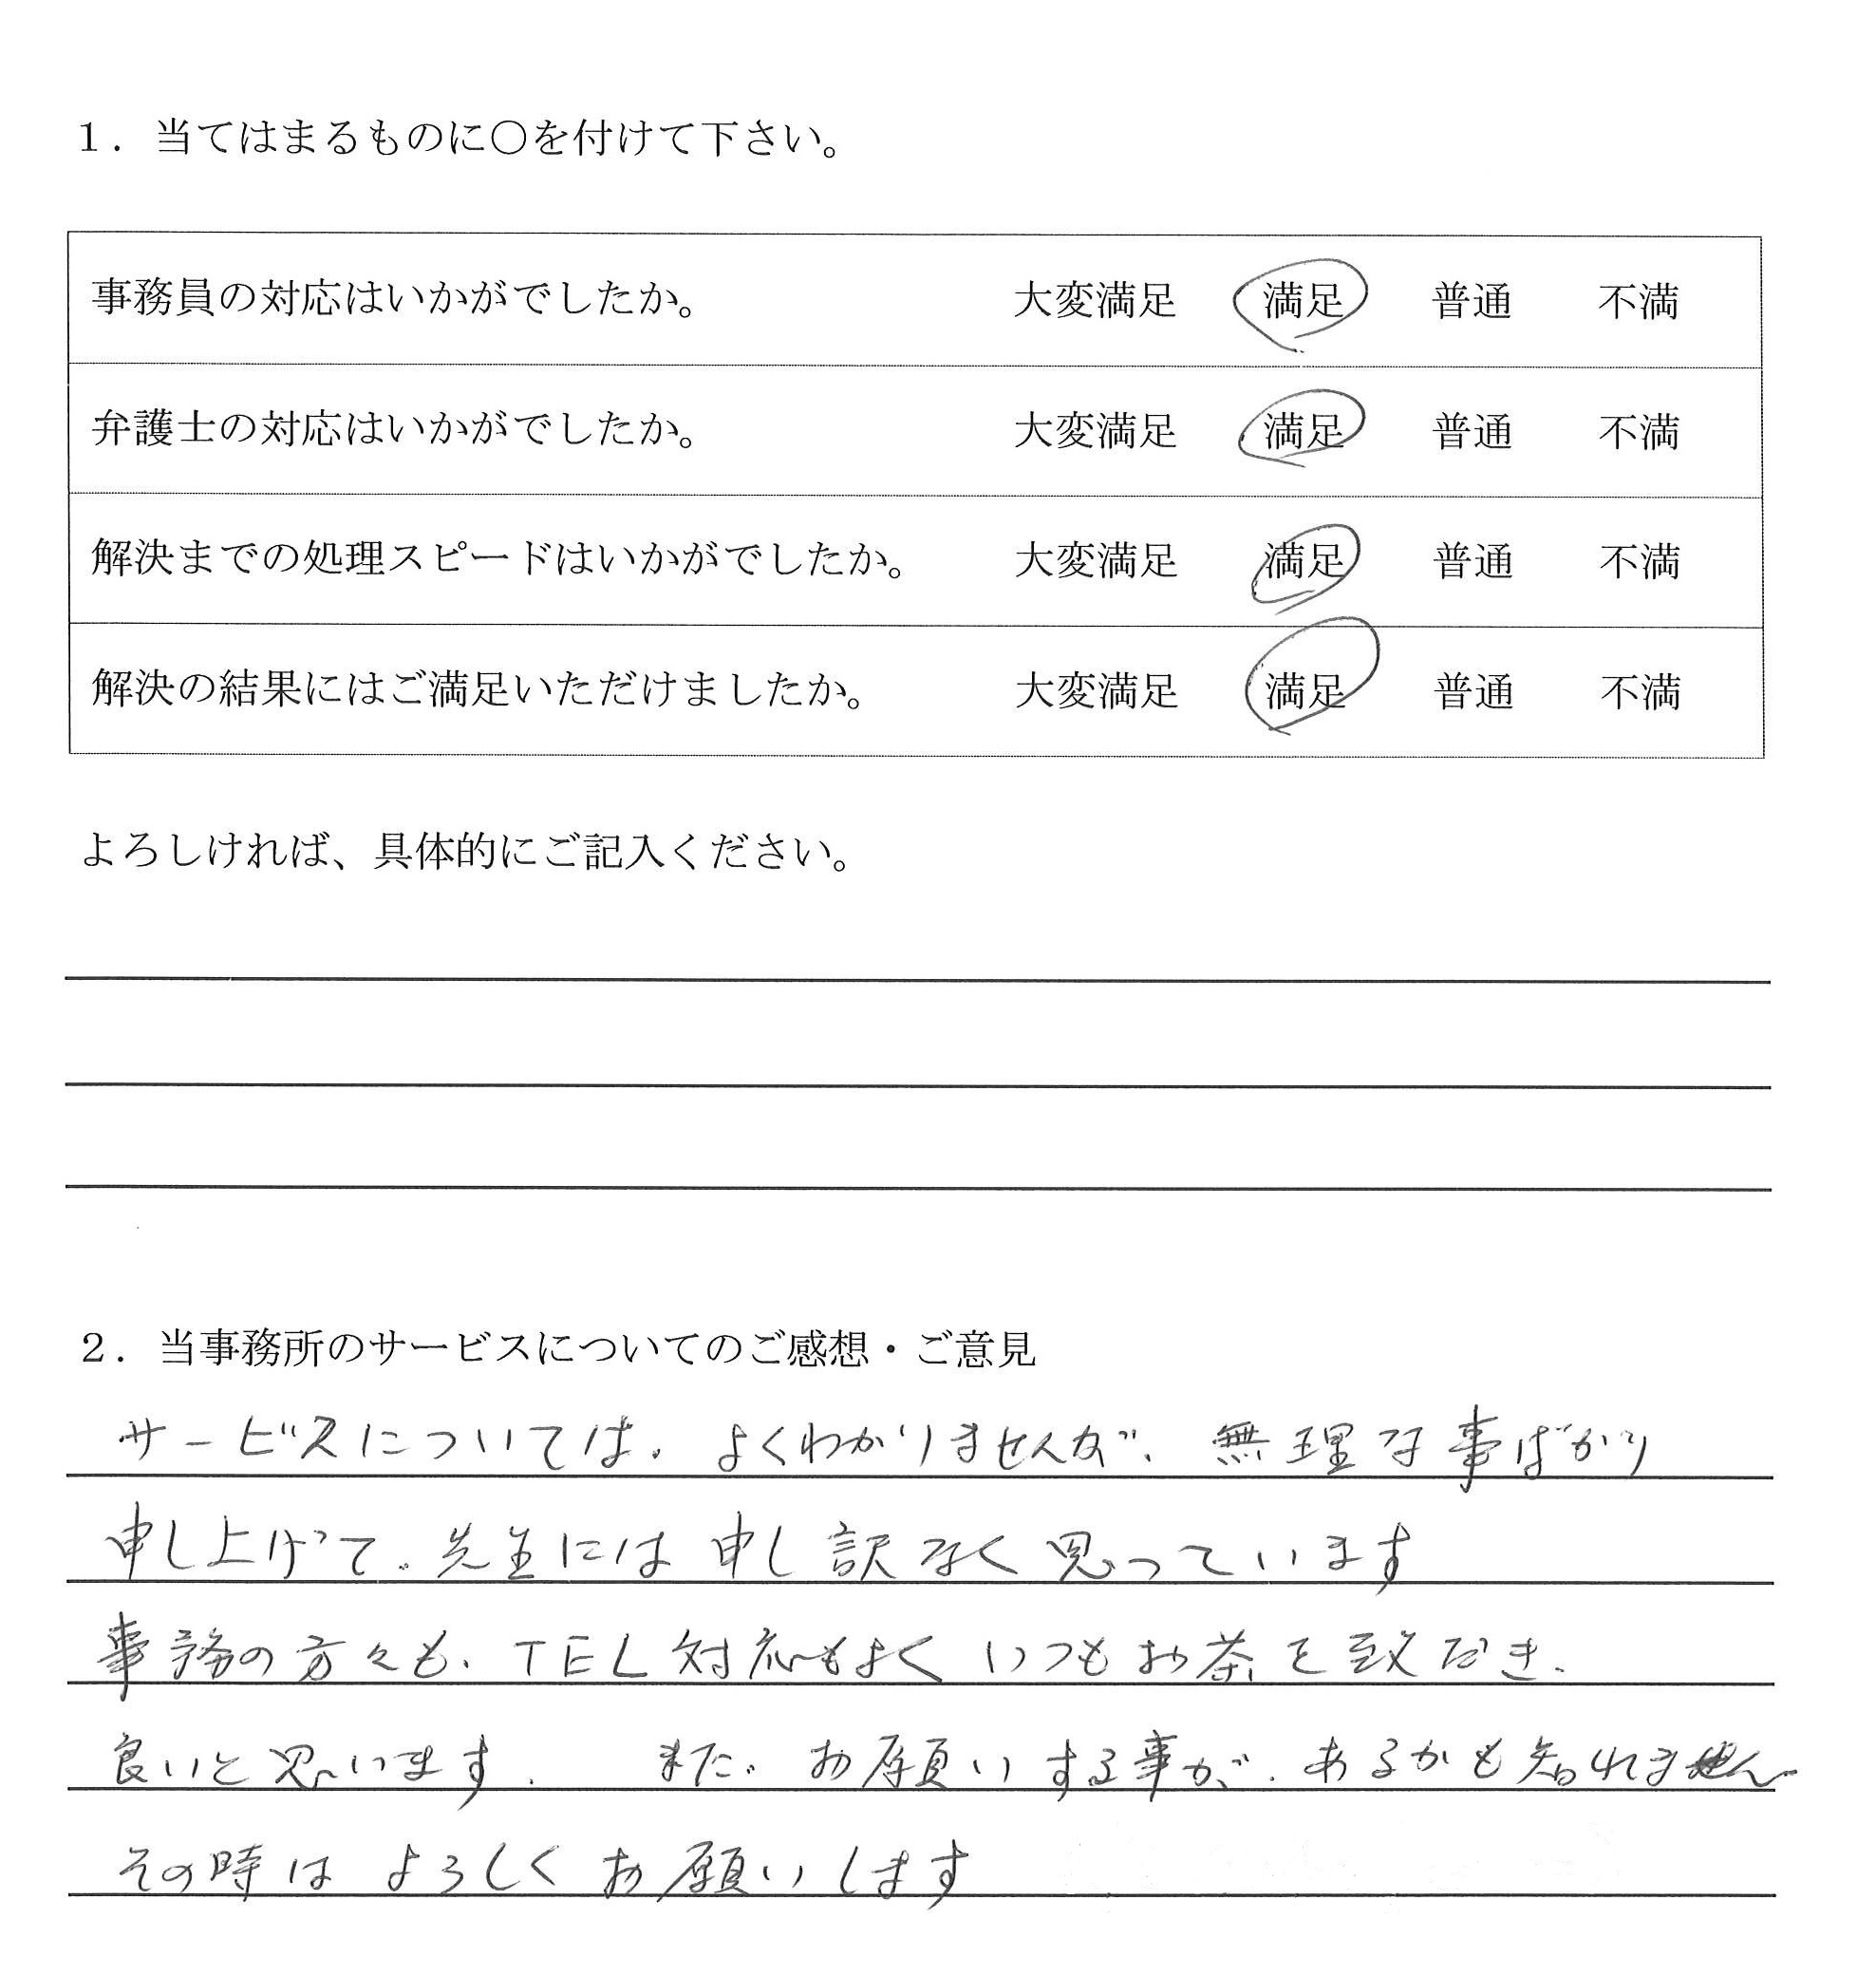 1．当てはまるものに○を付けて下さい。
事務員の対応はいかがでしたか。 大変満足 満足 普通 不満
弁護士の対応はいかがでしたか。 大変満足 満足 普通 不満
解決までの処理スピードはいかがでしたか。 大変満足 満足 普通 不満
解決の結果にはご満足いただけましたか。 大変満足 満足 普通 不満
よろしければ、具体的にご記入ください。
2．当事務所のサービスについてのご感想・ご意見
サービスについては、よくわかりませんが、無理な事ばかり
申し上げて、先生には申し訳なく思っています
事務の方々も、TEL対応もよくいつもお茶を致だき、
良いと思います。 また、お願いする事が、あるかも知れません
その時はよろしくお願いします